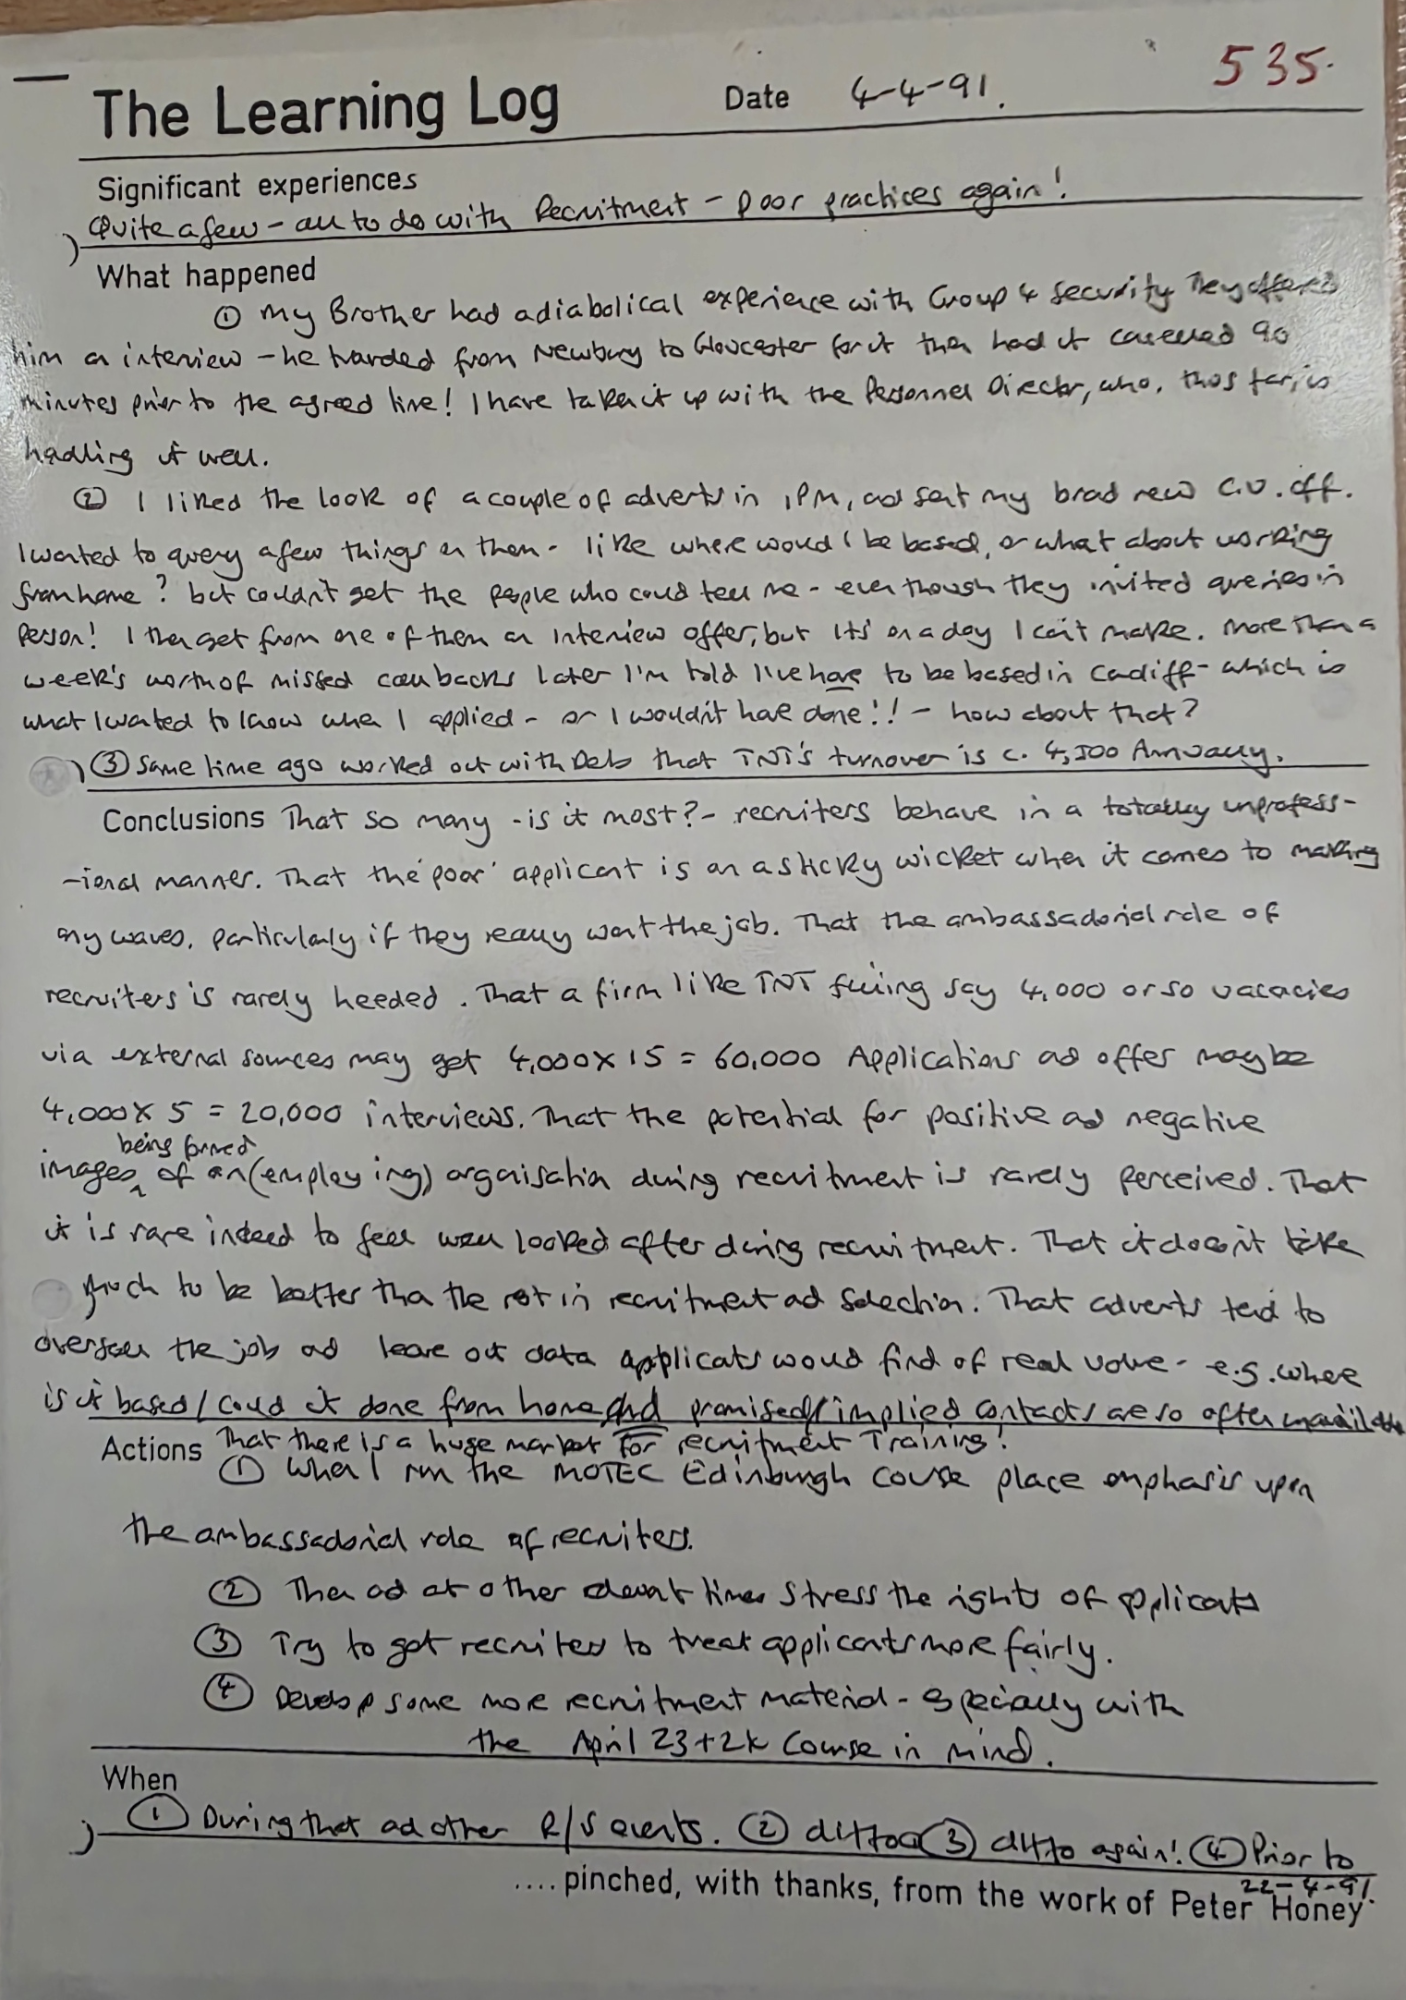 535.
The Learning Log Date 4-4-91.
Significant experiences
Quite a few - all to do with Recruitment - poor practices again!
What happened
① My Brother had a diabolical experience with Group 4 security They offered
him an interview - he traded from Newbury to Gloucester for it then had it cancelled 90
minutes prior to the agreed time! I have taken it up with the Personnel Director, who, thus far, is
handling it well.
② I liked the look of a couple of adverts in IPM, and sent my brand new C.V. off.
I wanted to query a few things on them - like where would I be based, or what about working
from home? but couldn't get the people who could tell me - even though they invited queries in
Person! I then get from one of them an interview offer, but it's on a day I can't make. More than a
week's worth of missed call backs later I'm told I'll have to be based in Cardiff - which is
what I wanted to know when I applied - or I wouldn't have done!! - how about that?
③ Some time ago worked out with Deb that TNT's turnover is c. 4,500 Annually.
Conclusions That so many - is it most? - recruiters behave in a totally unprofess-
-ional manner. That the 'poor' applicant is on a sticky wicket when it comes to making
any waves, particularly if they really want the job. That the ambassadorial role of
recruiters is rarely heeded. That a firm like TNT filling say 4,000 or so vacancies
via external sources may get 4,000 x 15 = 60,000 Applications and offer maybe
4,000 x 5 = 20,000 interviews. That the potential for positive and negative
being formed
images of an (employing) organisation during recruitment is rarely perceived. That
it is rare indeed to feel well looked after during recruitment. That it doesn't take
much to be better than the rest in recruitment and selection. That adverts tend to
oversell the job and leave out data applicants would find of real value - e.g. where
is it based / could it done from home and promised/implied contacts are so often unavailable
That there is a huge market for recruitment Training!
Actions
① When I run the MOTEC Edinburgh course place emphasis upon
the ambassadorial role of recruiters.
② Then and at other relevant times stress the rights of applicants
③ Try to get recruiters to treat applicants more fairly.
④ Develop some more recruitment material - especially with
the April 23+24 Course in mind.
When
① During that and other R/S events. ② ditto ③ ditto again! ④ Prior to
22-4-91.
.... pinched, with thanks, from the work of Peter Honey